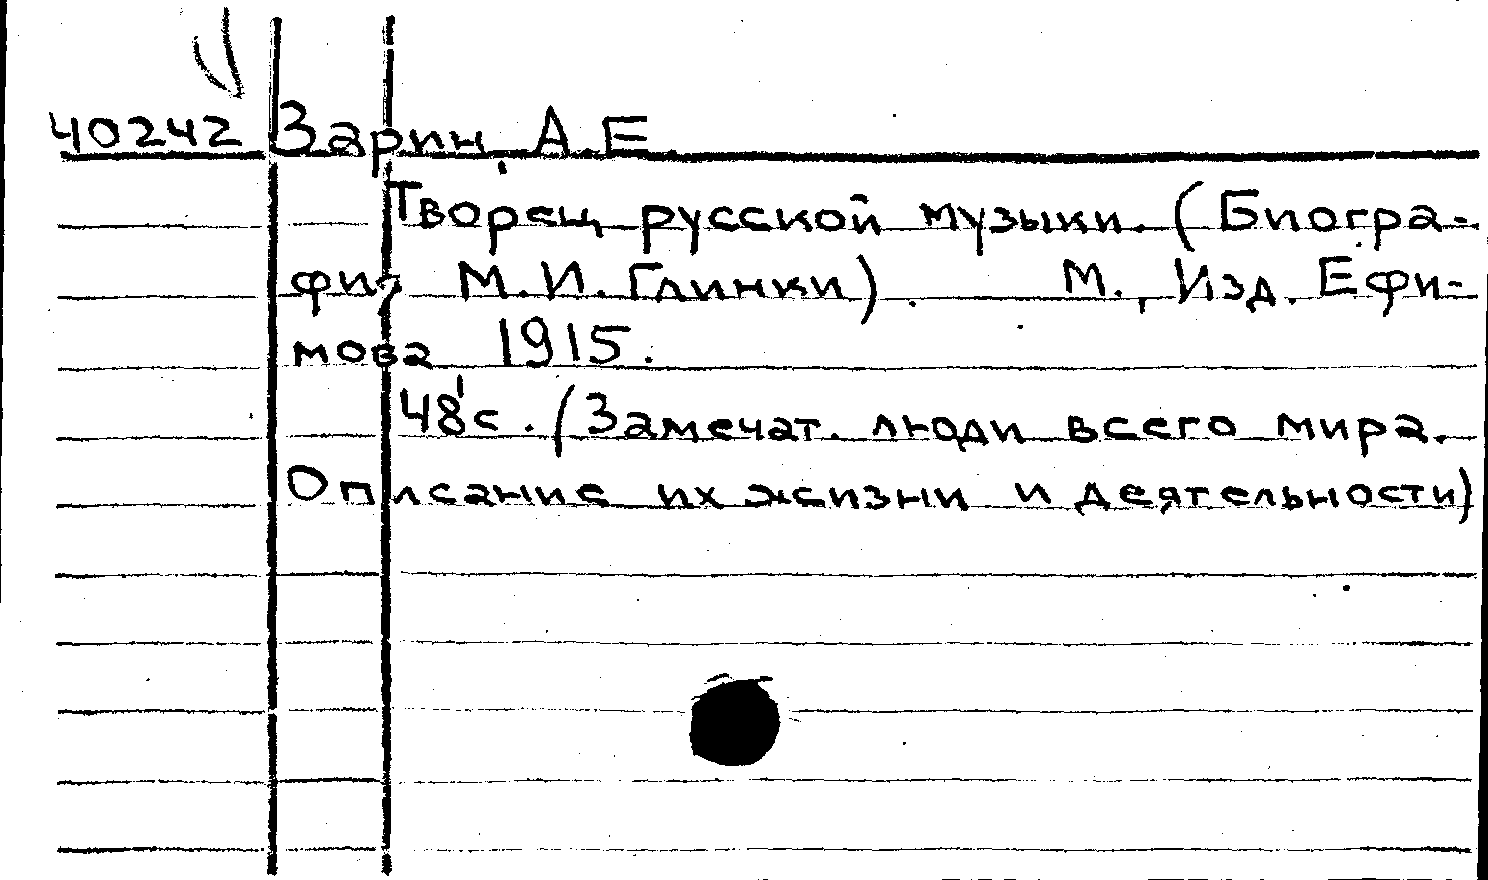 40242 Зарин, А.Е.
Творец русской музыки. (Биогра-
фия М.И. Глинки). М., Изд. Ефи-
мова 1915.
48 с. (Замечат. люди всего мира.
Описание их жизни и деятельности)